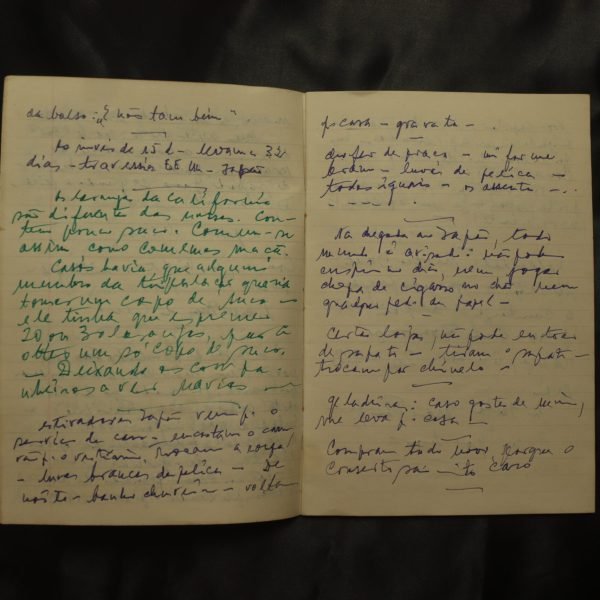 da balsa: "E nós também"
Os navios de 15 d - levamos 32
dias - travessia EE UU - Japão
As laranjas da California
são diferentes das nossas. Con-
tém pouco suco. Comem-se
assim como comemos maçã.
Casos havia, que algum
membro da tripulação queria
tomar um copo de suco -
ele tinha que espremer
20 ou 30 laranjas, para
obter um só copo de suco.
- Deixando os compa-
nheiros a ver navios -
estivadores Japão vem p. o
serviço de carro - encostam o carro
vão p. o vestiário, trocam a roupa
- luvas brancas de pelica - De
noite - banho chuveiro - voltam
p. casa - gravata -
chofer de praça - unifor me
- luvas de pelica -
todos iguais - os -
Na chegada ao Japão, todo
mundo é avisado: não pode
cuspir no chão, nem jogar
de cigarro no chão nem
qualquer pedaço de papel -
Certas lojas, não pode entrar
de sapato - tiram o sapato -
trocam por chinelo -
Geladeira: caso goste de mim,
me leva p. casa!
Compram tudo novo, porque o
conserto sai mto caro